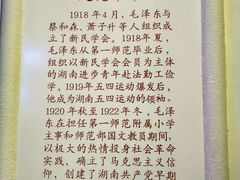 1918年4月，毛泽东与
蔡和森、萧子升等人组织成
立了新民学会。1918年夏，
毛泽东从第一师范毕业后，
组织以新民学会会员为主体
的湖南进步青年赴法勤工俭
学。1919年五四运动爆发后，
他成为湖南五四运动的领袖。
1920年秋至1922年冬，毛泽
东在担任第一师范附属小学
主事和师范部国文教员期间，
以极大的热情投身社会革命
实践，确立了马克思主义信
仰，创建了湖南共产党早期